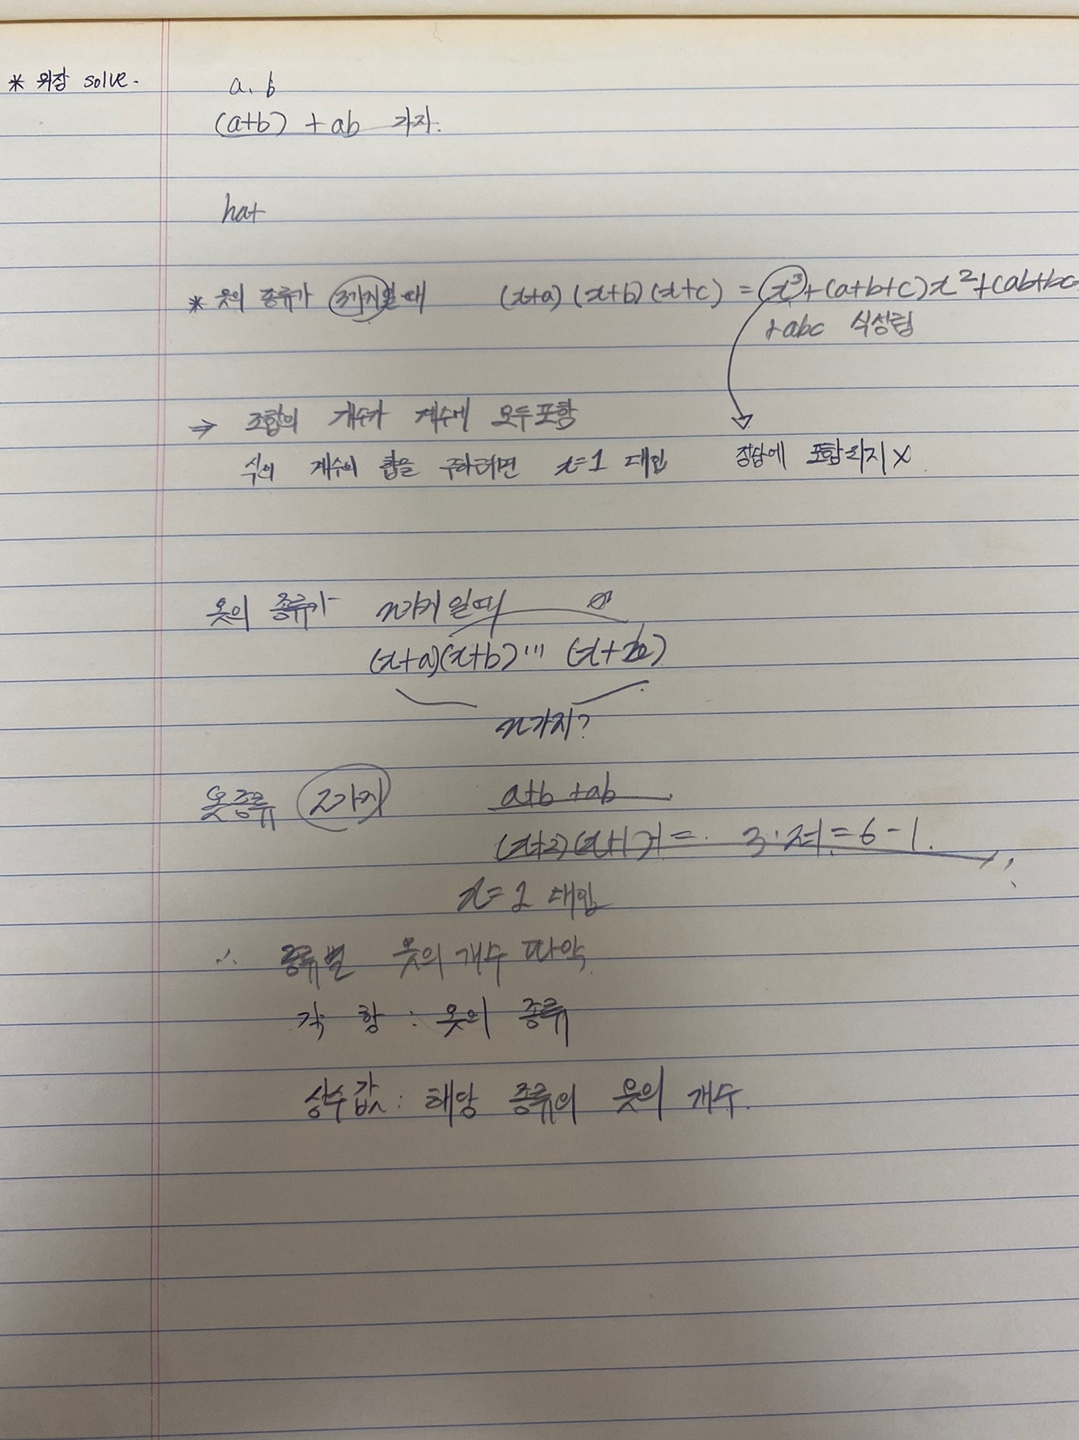 * 위장 solve.
a, b
(a+b) + ab 가지.
hat
* 옷의 종류가 3가지일 때 (x+a)(x+b)(x+c) = x³+(a+b+c)x²+(ab+bc
+abc 식성립
⇒ 조합의 개수가 계수에 모두 포함
식의 계수의 합을 구하려면 x=1 대입 정답에 포함되지 X
옷의 종류가 n가지 일때
(x+a)(x+b)··· (x+
n가지?
옷종류 2가지 a+b +ab
(x+2)(x+1) = 3·2 = 6-1.
x=1 대입
∴ 종류별 옷의 개수 파악
각 항 : 옷의 종류
상수값 : 해당 종류의 옷의 개수.